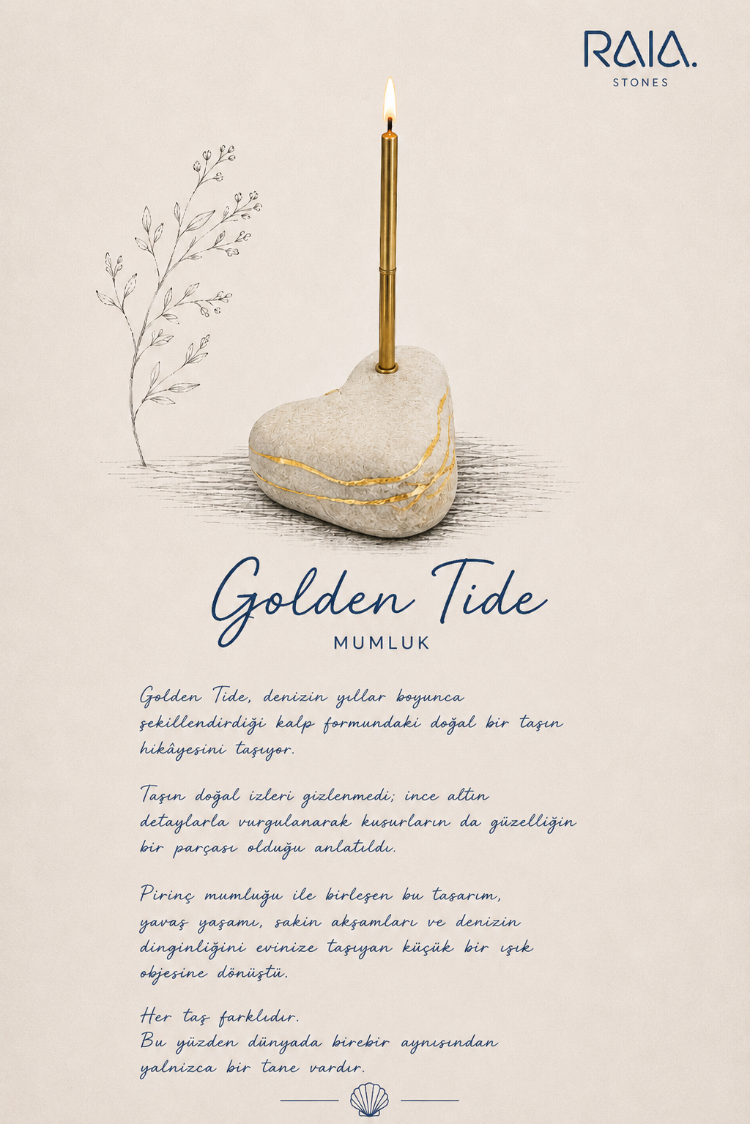 RAIA.
STONES
Golden Tide
MUMLUK
Golden Tide, denizin yıllar boyunca
şekillendirdiği kalp formundaki doğal bir taşın
hikâyesini taşıyor.
Taşın doğal izleri gizlenmedi; ince altın
detaylarla vurgulanarak kusurların da güzelliğin
bir parçası olduğu anlatıldı.
Pirinç mumluğu ile birleşen bu tasarım,
yavaş yaşamı, sakin akşamları ve denizin
dinginliğini evinize taşıyan küçük bir ışık
objesine dönüştü.
Her taş farklıdır.
Bu yüzden dünyada birebir aynısından
yalnızca bir tane vardır.